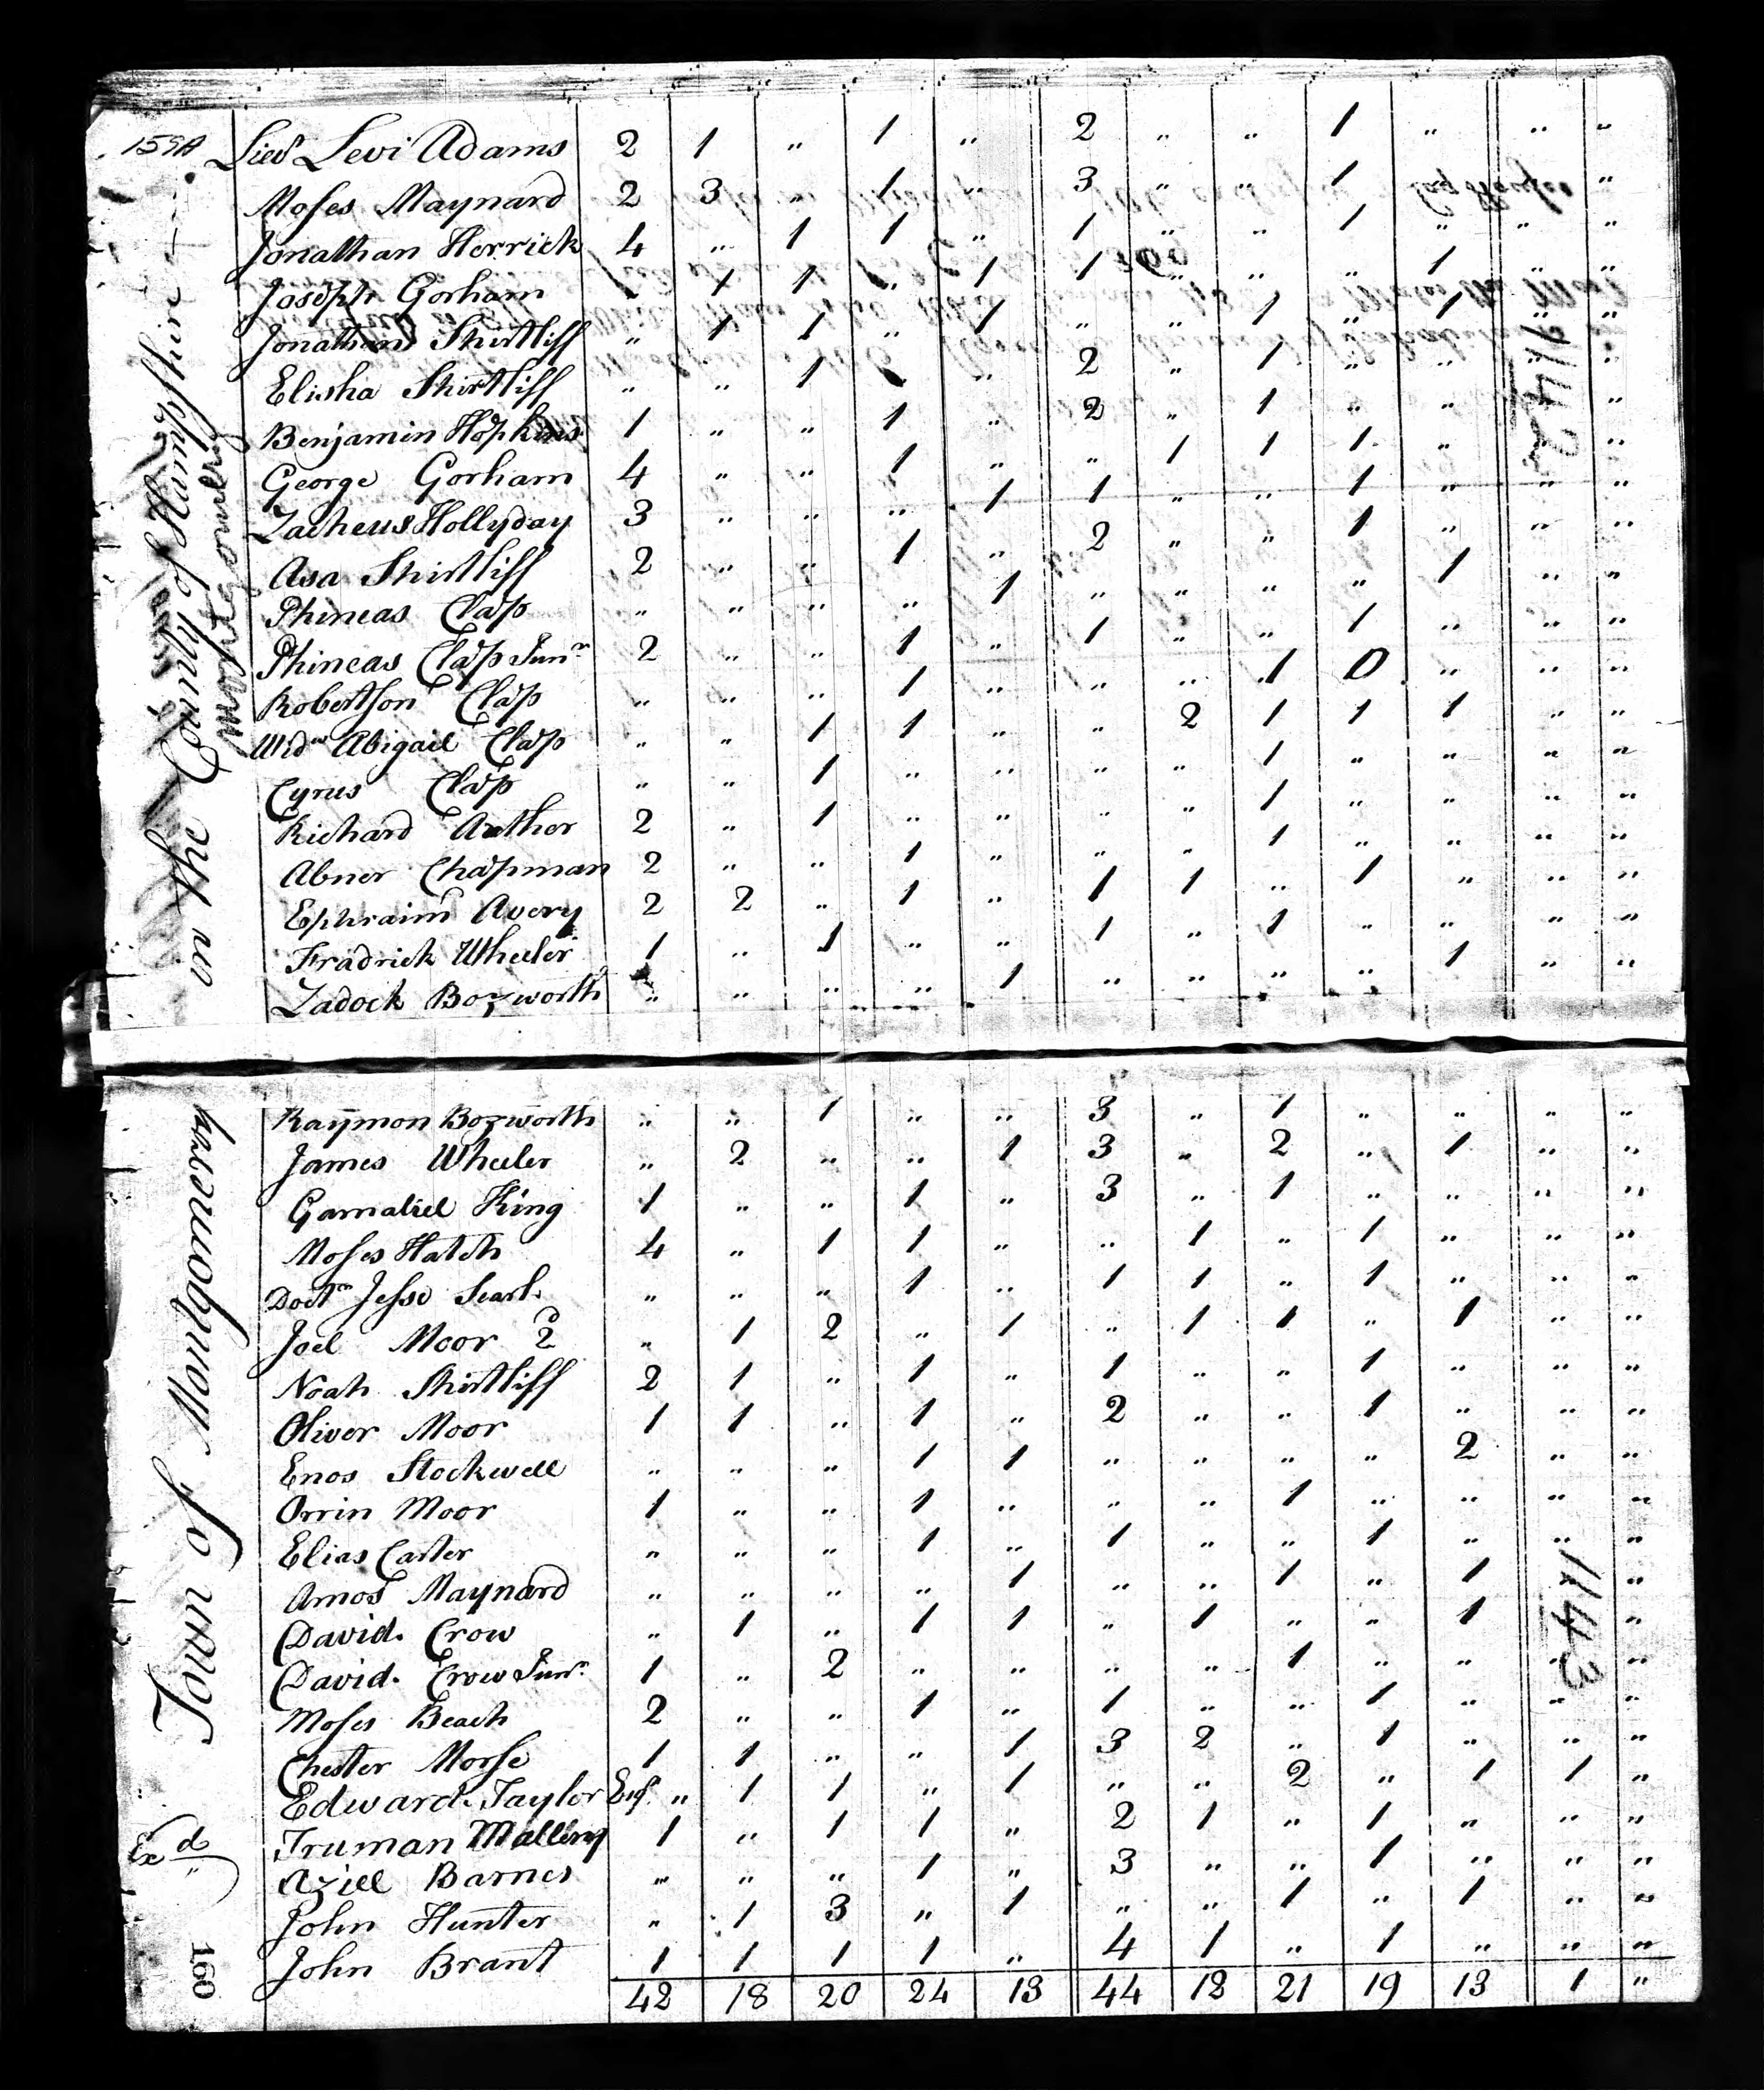 159A
Lieut Levi Adams 2 1 " 1 " 2 " " 1 " " "
Moses Maynard 2 3 " 1 " 3 " " 1 " "
Jonathan Herrick 4 " 1 1 " 1 " " 1 " " "
Joseph Gorham 1 1 " 1 1 " " " 1 " "
Jonathan Shirtliff " 1 1 " 1 " " 1 " 1 " "
Elisha Shirtliff " " 1 " 2 " 1 " " " "
Benjamin Hopkins 1 " " 1 " 2 " 1 " " "
George Gorham 4 " " 1 " " 1 1 1 " "
Zacheus Hollyday 3 " " " 1 1 " " 1 " " "
Asa Shirtliff 2 " " 1 " 2 " " 1 " " "
Phineas Clap " " " " 1 " " " " 1 " "
Phineas Clap Junr 2 " " 1 " 1 " " 1 " " "
Robertson Clap " " " 1 " " " 1 0 " " "
Widw Abigail Clap " " 1 1 " " 2 1 1 1 " "
Cyrus Clap " " 1 " " " " 1 " " " "
Richard Arther 2 " 1 " " " " 1 " " " "
Abner Chapman 2 " " 1 " " " 1 " " " "
Ephraim Avery 2 2 " 1 " 1 1 " 1 " " "
Fradrick Wheeler 1 " 1 " " 1 " 1 " " " "
Zadock Bozworth " " " " 1 " " " " 1 " "
in the County of Hampshire
Montgomery
1142
Raymon Bozworth " " 1 " " 3 " 1 " " " "
James Wheeler " 2 " " 1 3 " 2 " 1 " "
Gamaliel King 1 " " 1 " 3 " 1 " " " "
Moses Hatch 4 " 1 1 " " 1 " 1 " " "
Doctr Jesse Searl " " " 1 " 1 1 " 1 " " "
Joel Moor 2d " 1 2 " 1 " 1 1 " 1 " "
Noah Shirtliff 2 1 " 1 " 1 " " 1 " " "
Oliver Moor 1 1 " 1 " 2 " " 1 " " "
Enos Stockwell " " " 1 1 " " " " 2 " "
Orrin Moor 1 " " 1 " " " 1 " " " "
Elias Carter " " " 1 " 1 " " 1 " " "
Amos Maynard " " " " 1 " " 1 " 1 " "
David Crow " 1 " 1 1 " 1 " " 1 "
David Crow Junr 1 " 2 " " " " 1 " " " "
Moses Beach 2 " " 1 " 1 " " 1 " " "
Chester Morse 1 1 " " 1 3 2 " 1 " " "
Edward Taylor Esqr " 1 1 " 1 " " 2 " 1 1 "
Truman Mallery 1 " 1 1 " 2 1 " 1 " " "
Aziel Barnes " " " 1 " 3 " " 1 " " "
John Hunter " 1 3 " 1 " " 1 " 1 " "
John Brant 1 1 1 1 " 4 1 " 1 " " "
42 18 20 24 13 44 12 21 19 13 1 "
Town of Montgomery
Exd
160
1143